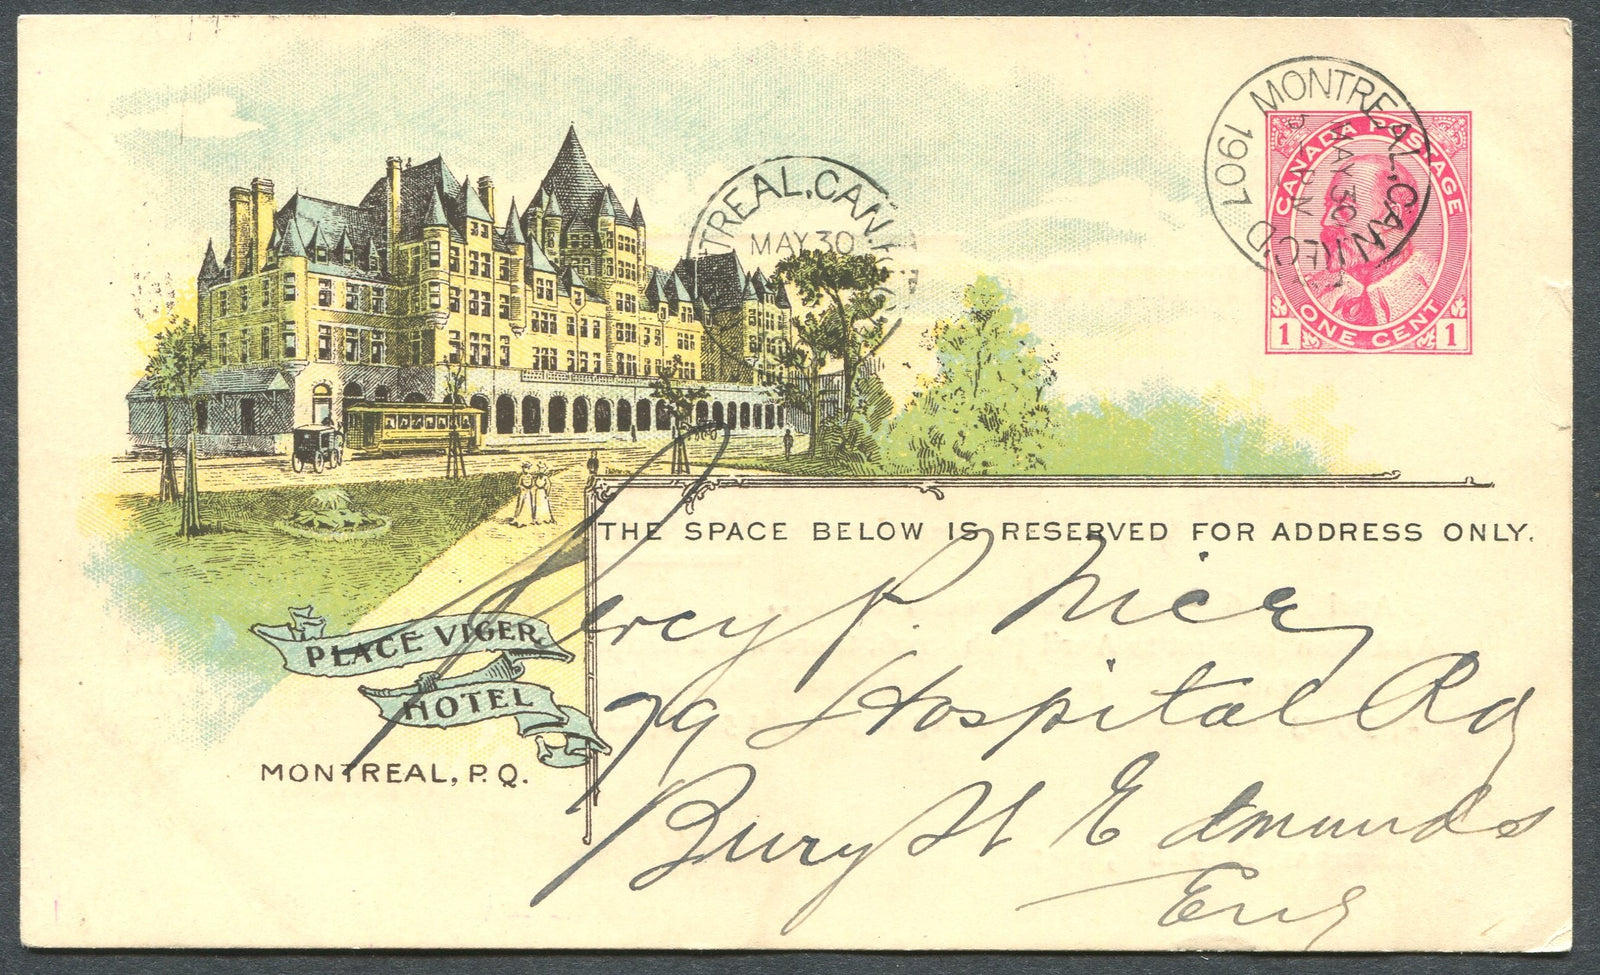 MONTREAL, CAN. REC'D 1907
MAY 30
5 PM
CANADA POSTAGE
ONE CENT
1 1
MONTREAL, CAN.
MAY 30
THE SPACE BELOW IS RESERVED FOR ADDRESS ONLY.
Percy P. Nice
79 Hospital Rd
Bury St Edmunds
Eng
PLACE VIGER
HOTEL
MONTREAL, P.Q.